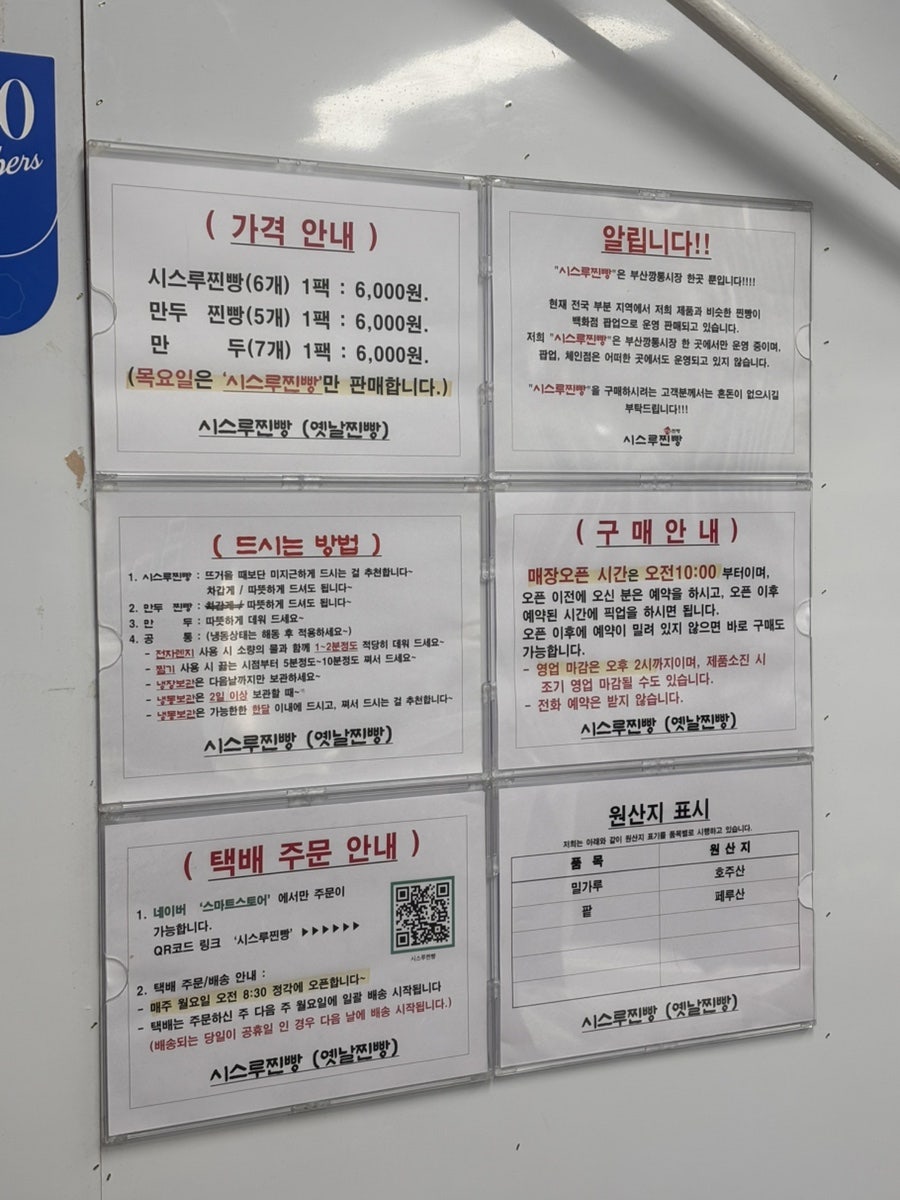 0
bers
( 가격 안내 )
시스루찐빵(6개) 1팩 : 6,000원.
만두 찐빵(5개) 1팩 : 6,000원.
만 두(7개) 1팩 : 6,000원.
(목요일은 '시스루찐빵'만 판매합니다.)
시스루찐빵 (옛날찐빵)
알립니다!!
"시스루찐빵"은 부산깡통시장 한곳 뿐입니다!!!!
현재 전국 부분 지역에서 저희 제품과 비슷한 찐빵이
백화점 팝업으로 운영 판매되고 있습니다.
저희 "시스루찐빵"은 부산깡통시장 한 곳에서만 운영 중이며,
팝업, 체인점은 어떠한 곳에서도 운영되고 있지 않습니다.
"시스루찐빵"을 구매하시려는 고객분께서는 혼돈이 없으시길
부탁드립니다!!!
시스루찐빵
( 드시는 방법 )
1. 시스루찐빵 : 뜨거울 때보단 미지근하게 드시는 걸 추천합니다~
차갑게 / 따뜻하게 드셔도 됩니다~
2. 만두 찐빵 : 차갑게 / 따뜻하게 드셔도 됩니다~
3. 만 두 : 따뜻하게 데워 드세요~
4. 공 통 : (냉동상태는 해동 후 적용하세요~)
- 전자렌지 사용 시 소량의 물과 함께 1~2분정도 적당히 데워 드세요~
- 찜기 사용 시 끓는 시점부터 5분정도~10분정도 쪄서 드세요~
- 냉장보관은 다음날까지만 보관하세요~
- 냉동보관은 2일 이상 보관할 때~
- 냉동보관은 가능한한 한달 이내에 드시고, 쪄서 드시는 걸 추천합니다~
시스루찐빵 (옛날찐빵)
( 구 매 안 내 )
매장오픈 시간은 오전10:00 부터이며,
오픈 이전에 오신 분은 예약을 하시고, 오픈 이후
예약된 시간에 픽업을 하시면 됩니다.
오픈 이후에 예약이 밀려 있지 않으면 바로 구매도
가능합니다.
- 영업 마감은 오후 2시까지이며, 제품소진 시
조기 영업 마감될 수도 있습니다.
- 전화 예약은 받지 않습니다.
시스루찐빵 (옛날찐빵)
( 택배 주문 안내 )
1. 네이버 '스마트스토어' 에서만 주문이
가능합니다.
QR코드 링크 '시스루찐빵' ▶▶▶▶▶▶
시스루찐빵
2. 택배 주문/배송 안내 :
- 매주 월요일 오전 8:30 정각에 오픈합니다~
- 택배는 주문하신 주 다음 주 월요일에 일괄 배송 시작됩니다
(배송되는 당일이 공휴일 인 경우 다음 날에 배송 시작됩니다.)
시스루찐빵 (옛날찐빵)
원산지 표시
저희는 아래와 같이 원산지 표기를 품목별로 시행하고 있습니다.
품 목 원 산 지
밀가루 호주산
팥 페루산
시스루찐빵 (옛날찐빵)